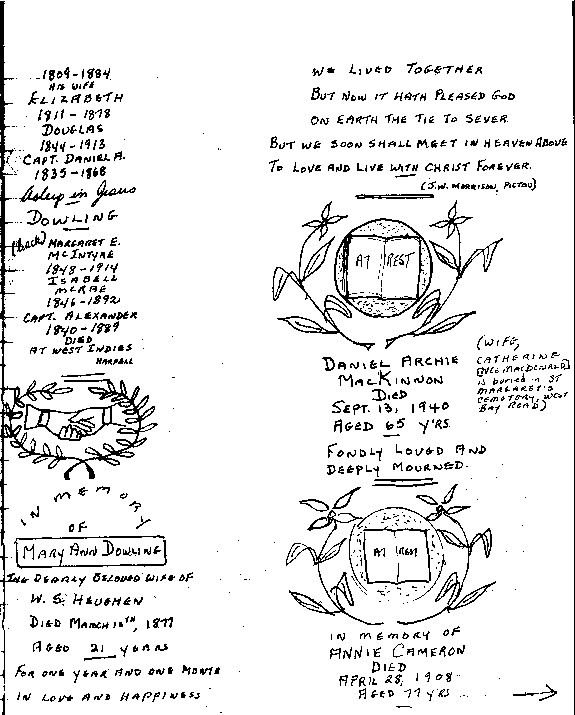 1809-1884
HIS WIFE
ELIZABETH
1811-1878
DOUGLAS
1844-1913
CAPT. DANIEL A.
1835-1868
Asleep in Jesus
DOWLING
(Back) MARGARET E.
MCINTYRE
1848-1914
ISABELL
MCRAE
1846-1892
CAPT. ALEXANDER
1840-1889
DIED
AT WEST INDIES
HARPELL
IN MEMORY
OF
MARY ANN DOWLING
DEARLY BELOVED WIFE OF
W. S. HEUGHEN
DIED MARCH 10TH, 1877
AGED 21 YEARS
FOR ONE YEAR AND ONE MONTH
IN LOVE AND HAPPINESS
WE LIVED TOGETHER
BUT NOW IT HATH PLEASED GOD
ON EARTH THE TIE TO SEVER
BUT WE SOON SHALL MEET IN HEAVEN ABOVE
TO LOVE AND LIVE WITH CHRIST FOREVER.
(J.W. MORRISON, PICTOU)
AT REST
DANIEL ARCHIE
MACKINNON
DIED
SEPT. 13, 1940
AGED 65 Y'RS.
(WIFE,
CATHERINE
(NEE MACDONALD)
is buried in ST
MARGARET'S
CEMETORY, WEST
BAY ROAD)
FONDLY LOVED AND
DEEPLY MOURNED.
AT REST
IN MEMORY OF
ANNIE CAMERON
DIED
APRIL 28, 1908
AGED 77 YRS.